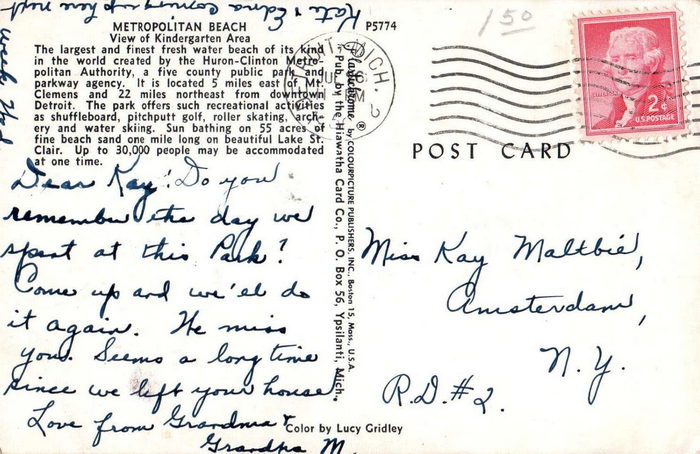 METROPOLITAN BEACH
View of Kindergarten Area
The largest and finest fresh water beach of its kind
in the world created by the Huron-Clinton Metro-
politan Authority, a five county public park and
parkway agency. It is located 5 miles east of Mt.
Clemens and 22 miles northeast from downtown
Detroit. The park offers such recreational activities
as shuffleboard, pitchputt golf, roller skating, arch-
ery and water skiing. Sun bathing on 55 acres of
fine beach sand one mile long on beautiful Lake St.
Clair. Up to 30,000 people may be accommodated
at one time.
Dear Kay! Do you
remember the day we
spent at this Park?
Come up and we'el do
it again. We miss
you. Seems a long time
since we left your house
Love from Grandma &
Grandpa M.
Kate & Edna Coming up here next
week Wed
P5774
Plastichrome ® by COLOURPICTURE PUBLISHERS, INC., Boston 15, Mass., U.S.A.
Pub. by the Hiawatha Card Co., P. O. Box 56, Ypsilanti, Mich.
Color by Lucy Gridley
1 50
DETROIT, MICH. 2
2¢
U.S. POSTAGE
POST CARD
Miss Kay Maltbie,
Amsterdam,
N.Y.
R.D. #2.